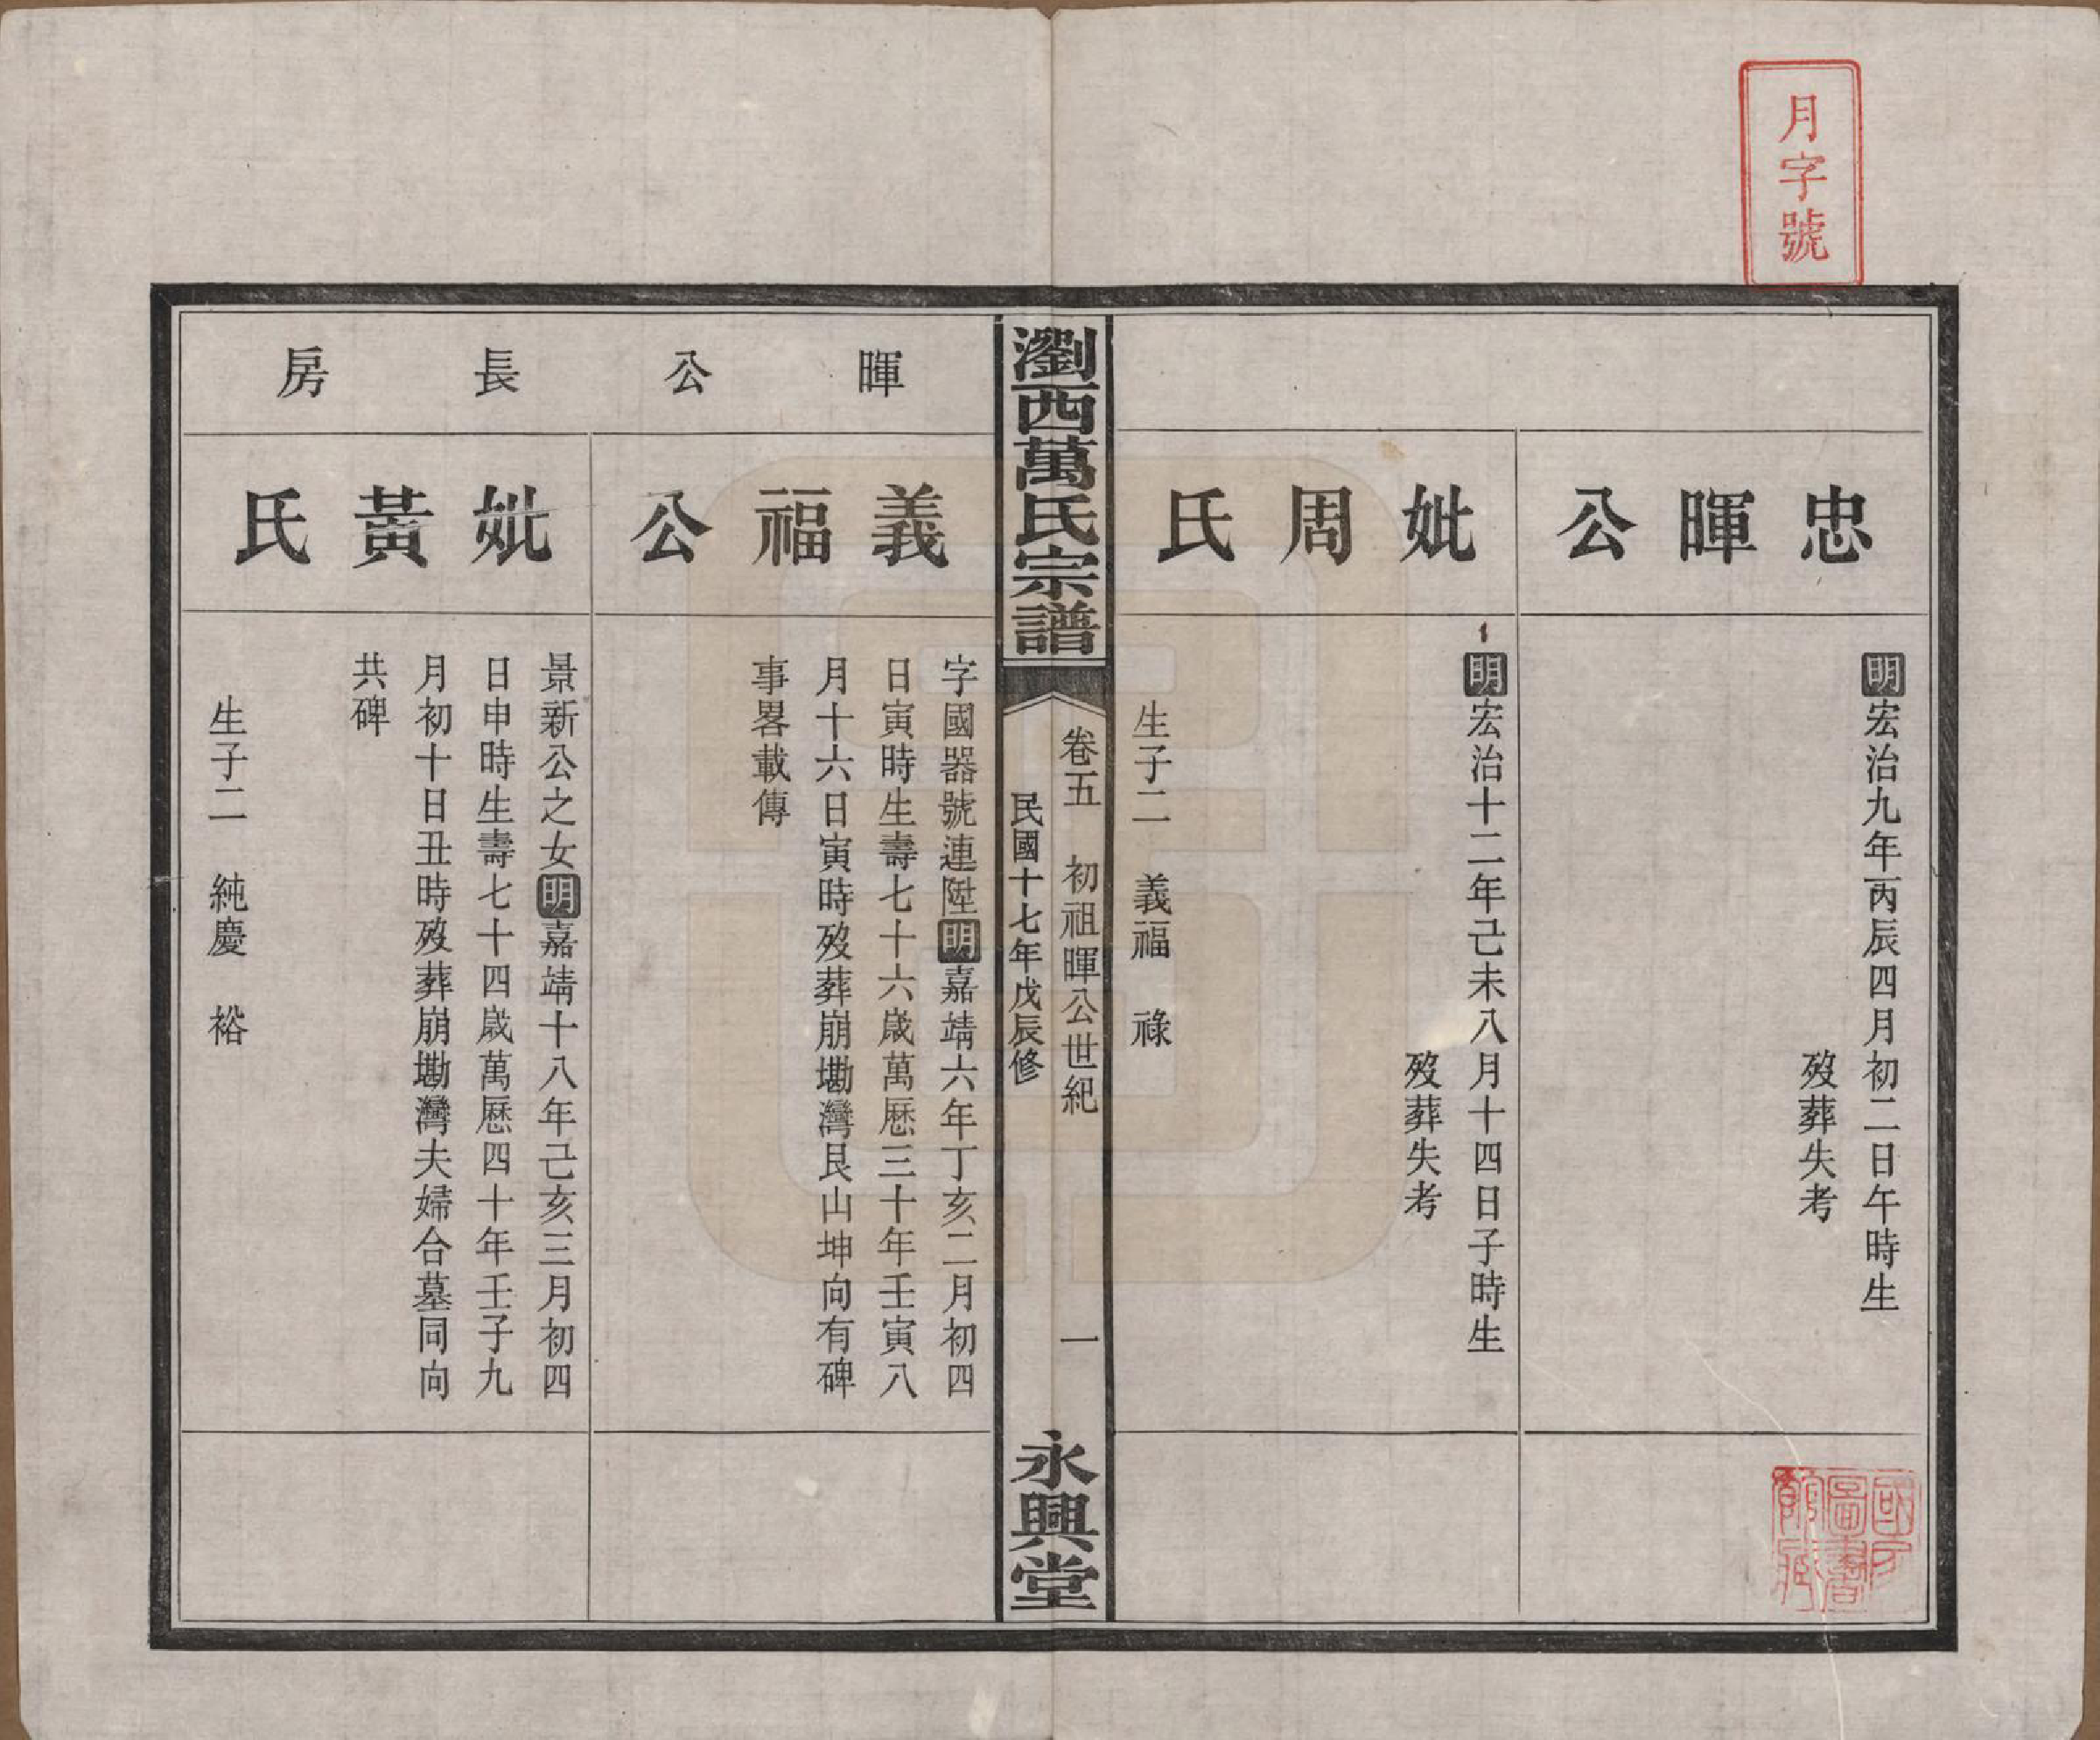 月字號
忠暉公
明宏治九年丙辰四月初二日午時生
歿葬失考
妣周氏
明宏治十二年己未八月十四日子時生
歿葬失考
生子二　義福　祿
瀏西萬氏宗譜
卷五　初祖暉公世紀　一
民國十七年戊辰修
永興堂
暉公長房
義福公
字國器號連陞明嘉靖六年丁亥二月初四
日寅時生壽七十六歲萬厯三十年壬寅八
月十六日寅時歿葬崩墈灣艮山坤向有碑
事畧載傳
妣黃氏
景新公之女明嘉靖十八年己亥三月初四
日申時生壽七十四歲萬厯四十年壬子九
月初十日丑時歿葬崩墈灣夫婦合墓同向
共碑
生子二　純慶　裕
國立圖書館藏